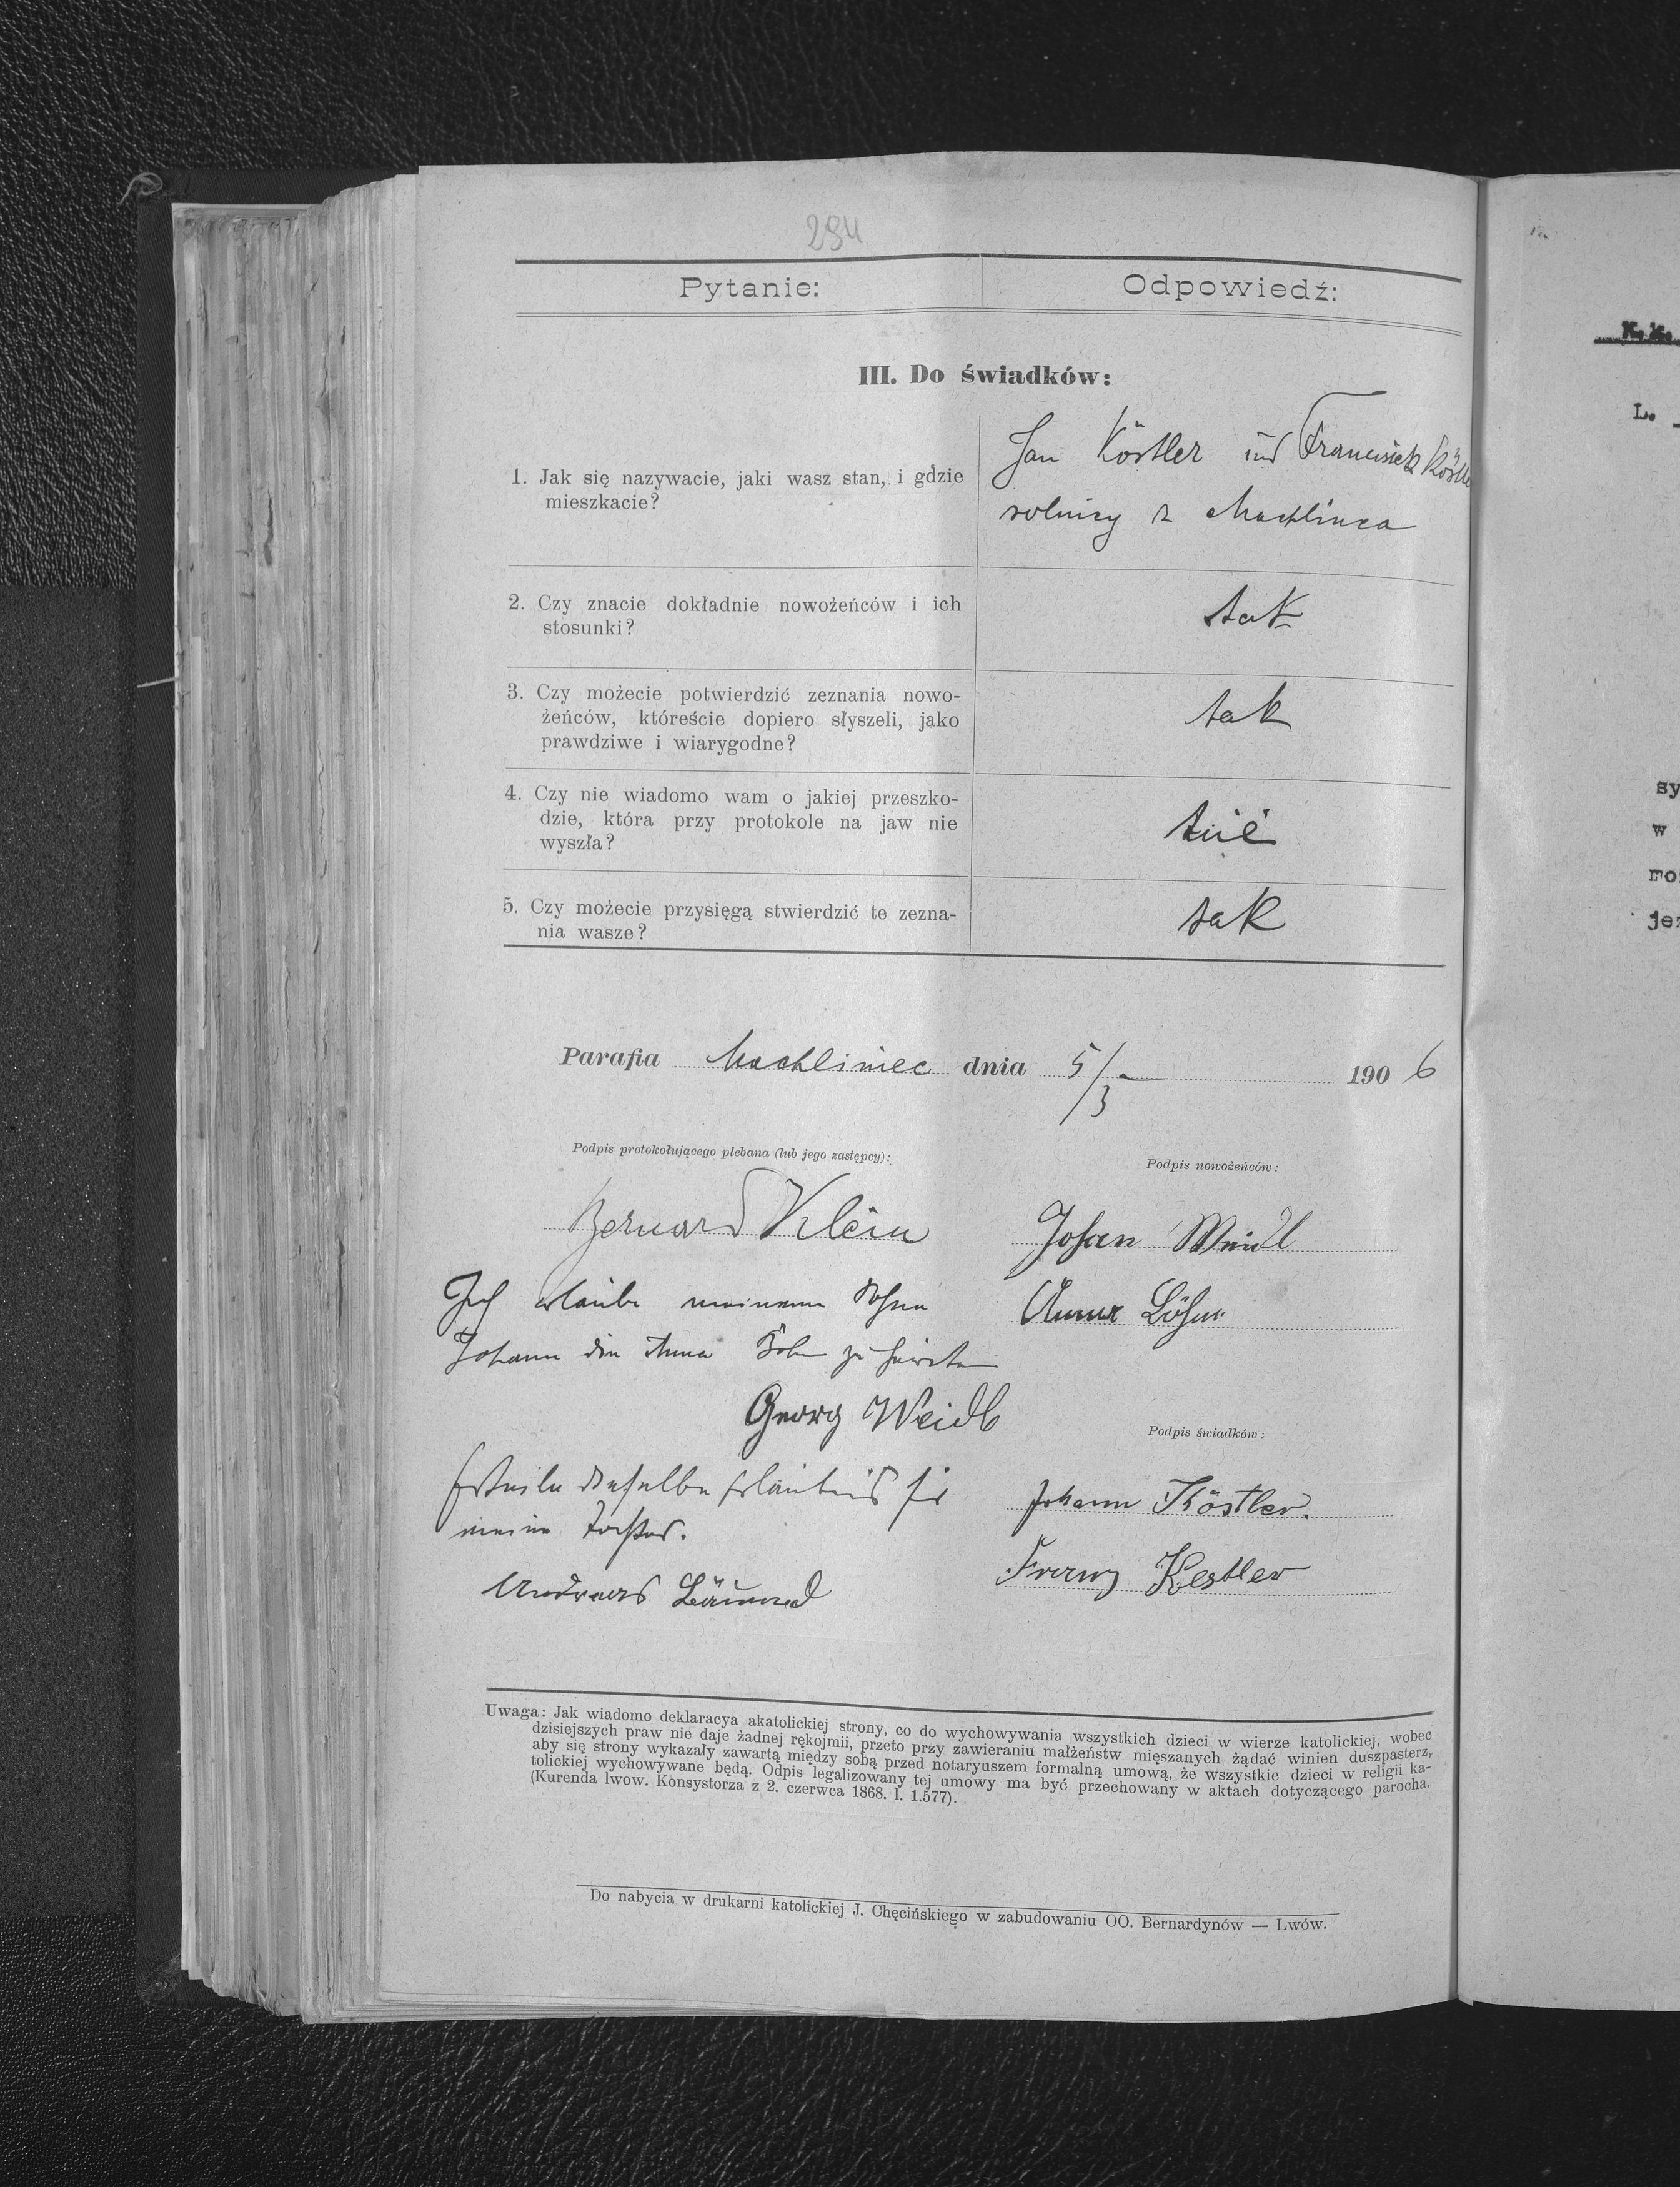 294
Pytanie: Odpowiedź:
III. Do świadków:
1. Jak się nazywacie, jaki wasz stan, i gdzie
mieszkacie?
Jan Köstler und Franciszek Köstle
rolnicy z Machlińca
2. Czy znacie dokładnie nowożeńców i ich
stosunki?
tak
3. Czy możecie potwierdzić zeznania nowo-
żeńców, któreście dopiero słyszeli, jako
prawdziwe i wiarygodne?
tak
4. Czy nie wiadomo wam o jakiej przeszko-
dzie, która przy protokole na jaw nie
wyszła?
5. Czy możecie przysięgą stwierdzić te zezna-
nia wasze?
tak
Parafia Machliniec dnia 5/3 1906
Podpis protokołującego plebana (lub jego zastępcy):
Podpis nowożeńców:
Bernard Klein
Johan Weidl
Ich erlaube meinem Sohne
Anna
Johann die Anna zu heiraten
Georg Weidl
Podpis świadków:
Erteile dieselbe Erlaubnis für
meine Tochter.
Johann Köstler.
Franz Kestler
Andreas
Uwaga: Jak wiadomo deklaracya akatolickiej strony, co do wychowywania wszystkich dzieci w wierze katolickiej, wobec
dzisiejszych praw nie daje żadnej rękojmii, przeto przy zawieraniu małżeństw mięszanych żądać winien duszpasterz,
aby się strony wykazały zawartą między sobą przed notaryuszem formalną umową, że wszystkie dzieci w religii ka-
tolickiej wychowywane będą. Odpis legalizowany tej umowy ma być przechowany w aktach dotyczącego parocha.
(Kurenda lwow. Konsystorza z 2. czerwca 1868. l. 1.577).
Do nabycia w drukarni katolickiej J. Chęcińskiego w zabudowaniu OO. Bernardynów — Lwów.
K.K.
L.
sy
w
mo
jez